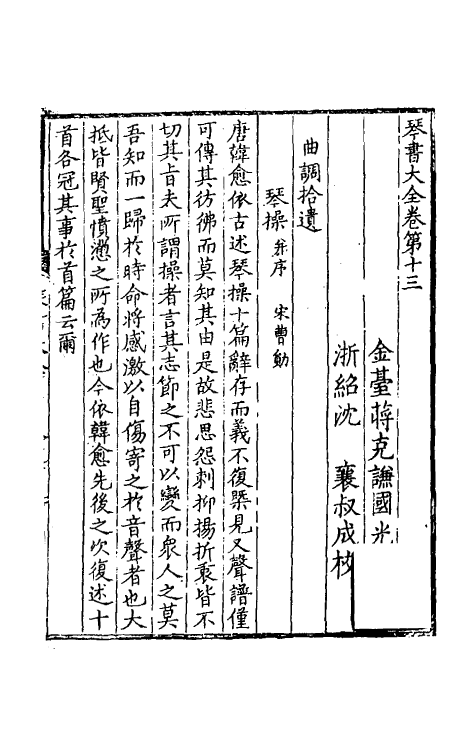 琴書大全卷第十三
金臺蔣克謙國光
浙紹沈 襄叔成校
曲調拾遺
琴操并序 宋曹勛
唐韓愈依古述琴操十篇辭存而義不復槩見又聲譜僅
可傳其彷彿而莫知其由是故悲思怨刺抑揚折衷皆不
切其旨夫所謂操者言其志節之不可以變而衆人之莫
吾知而一歸於時命將感激以自傷寄之於音聲者也大
抵皆賢聖憤懣之所為作也今依韓愈先後之次復述十
首各冠其事於首篇云爾